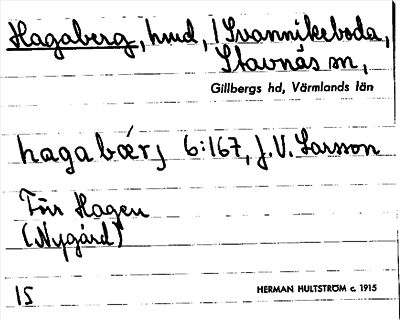 Hagaberg, hmd, / Svannikeboda,
Stavnäs sn,
Gillbergs hd, Värmlands län
hagabǽrj 6:167, J.V. Larsson
Förr Hagen
(Nygård)
15
HERMAN HULTSTRÖM c. 1915